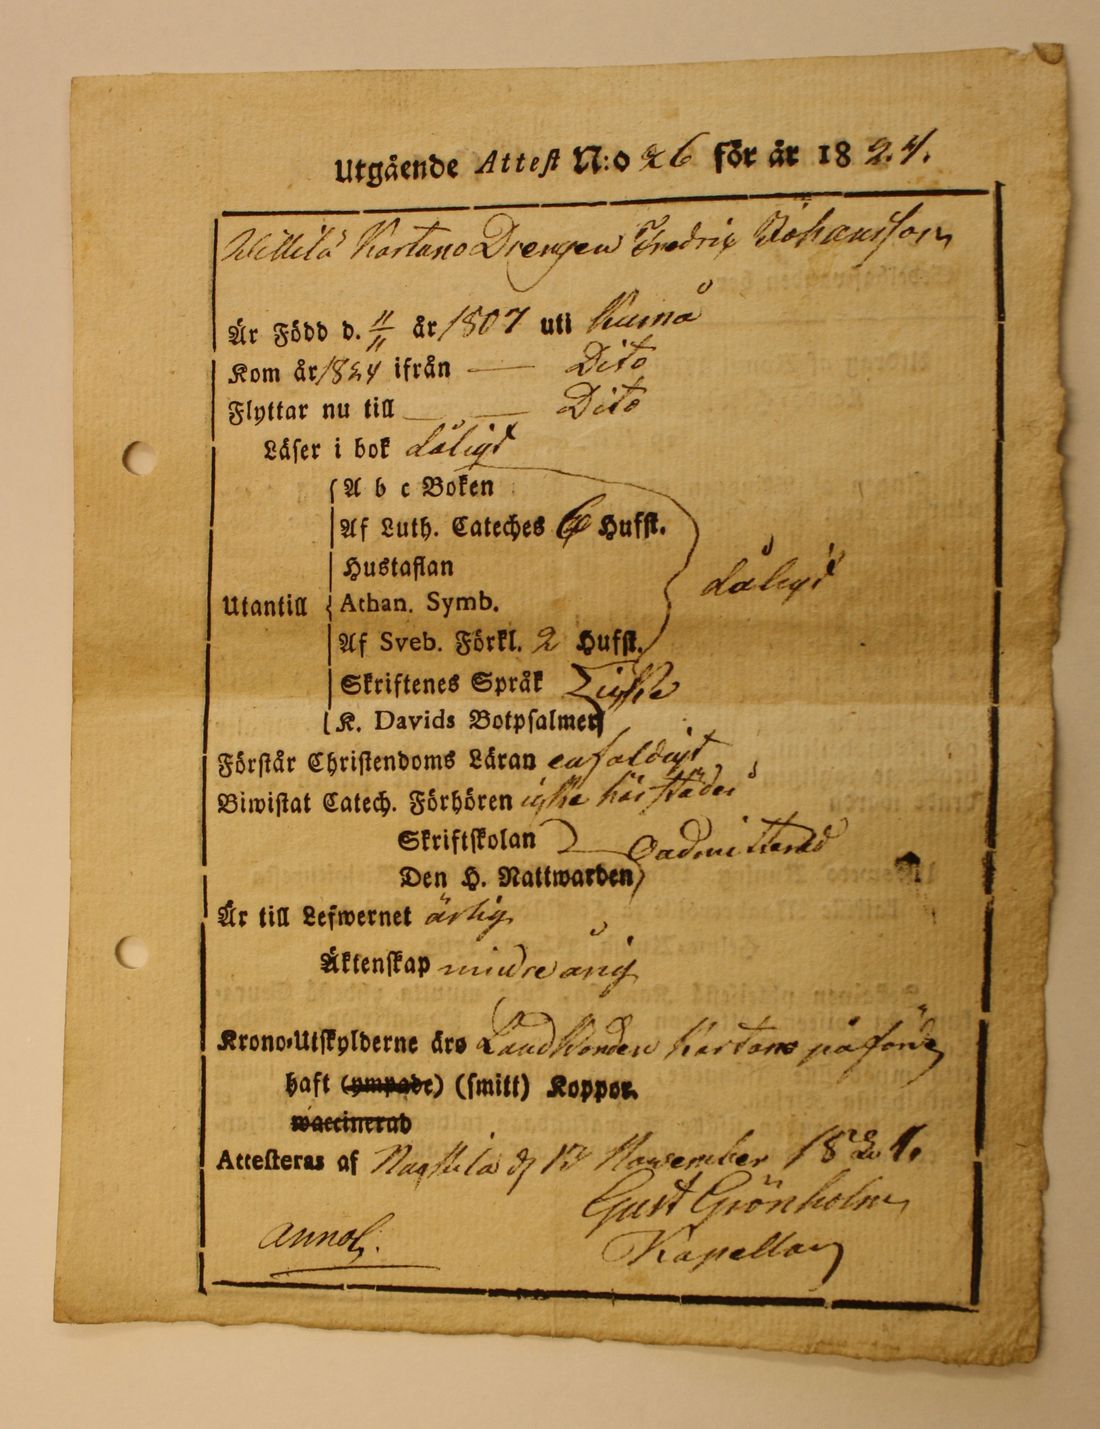 Utgående Attest N:o 26 för år 1824.
Willilä Kartano Drengen Fredric Johansson
Är Född d. 11/11 år 1807 uti Kumå
Kom år 1824 ifrån — Dito
Flyttar nu till — — Dito
Läser i bok dåligt
A b c Boken
Af Luth. Cateches 6 Hufst.
Hustaflan
Utantill Athan. Symb. dåligt
Af Sveb. Förkl. 2 Hufst.
Skriftenes Språk Icke
K. Davids Botpsalmer
Förstår Christendoms Läran enfaldigt
Biwistat Catech. Förhören icke här städes
Skriftskolan Oadmitterad
Den H. Nattwarden
Är till Lefwernet ärlig
Äktenskap mindreårig
Krono-Utskylderne äro Kartano påförde
haft (ympade) (smitt) Koppor.
waccinerad
Attesteras af d. November 1824.
Gust Grönholm
Kapellan
annol.